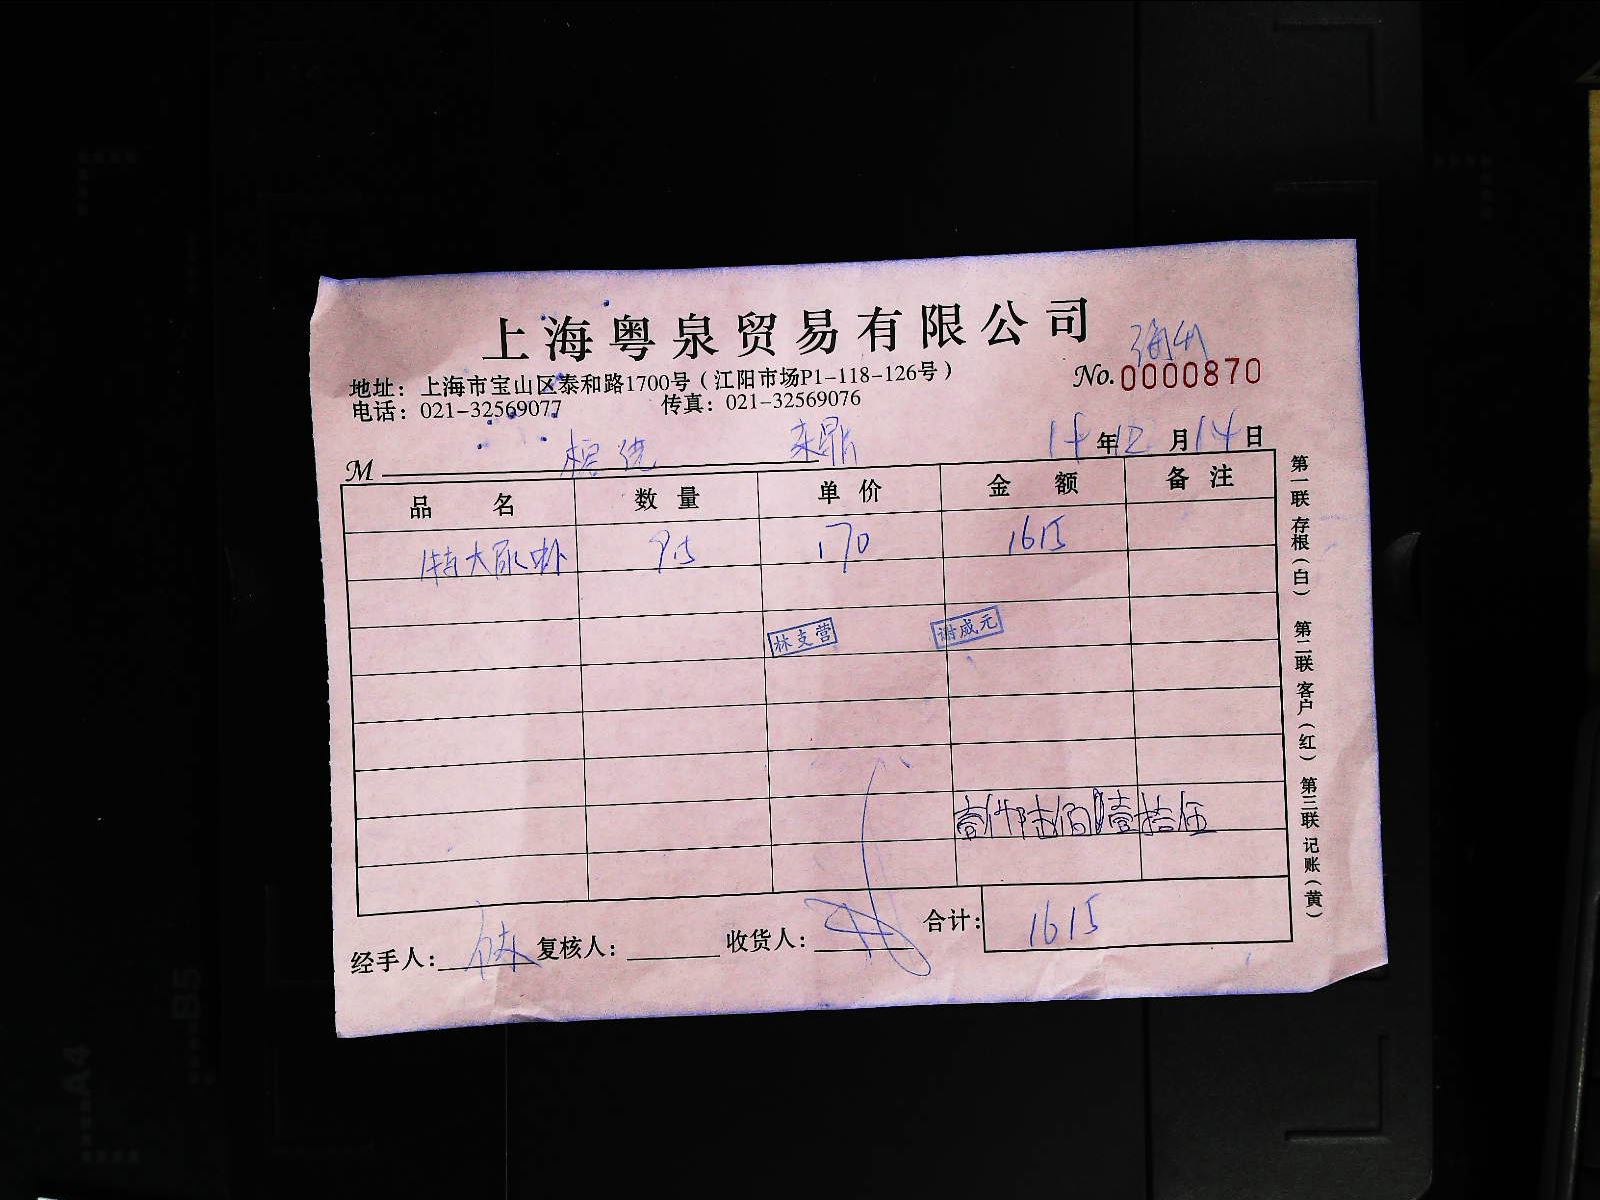 上海粤泉贸易有限公司
地址：上海市宝山区泰和路1700号（江阳市场P1-118-126号）
No.0000870
电话：021-32569077 传真：021-32569076
M 来鼎 年12月14日
品 名 数 量 单 价 金 额 备 注
特大尿虾 9.5 170 1615
林支营 谢咸元
壹仟陆佰壹拾伍
经手人： 复核人： 收货人： 合计：1615
第一联 存根（白） 第二联 客户（红） 第三联 记账（黄）